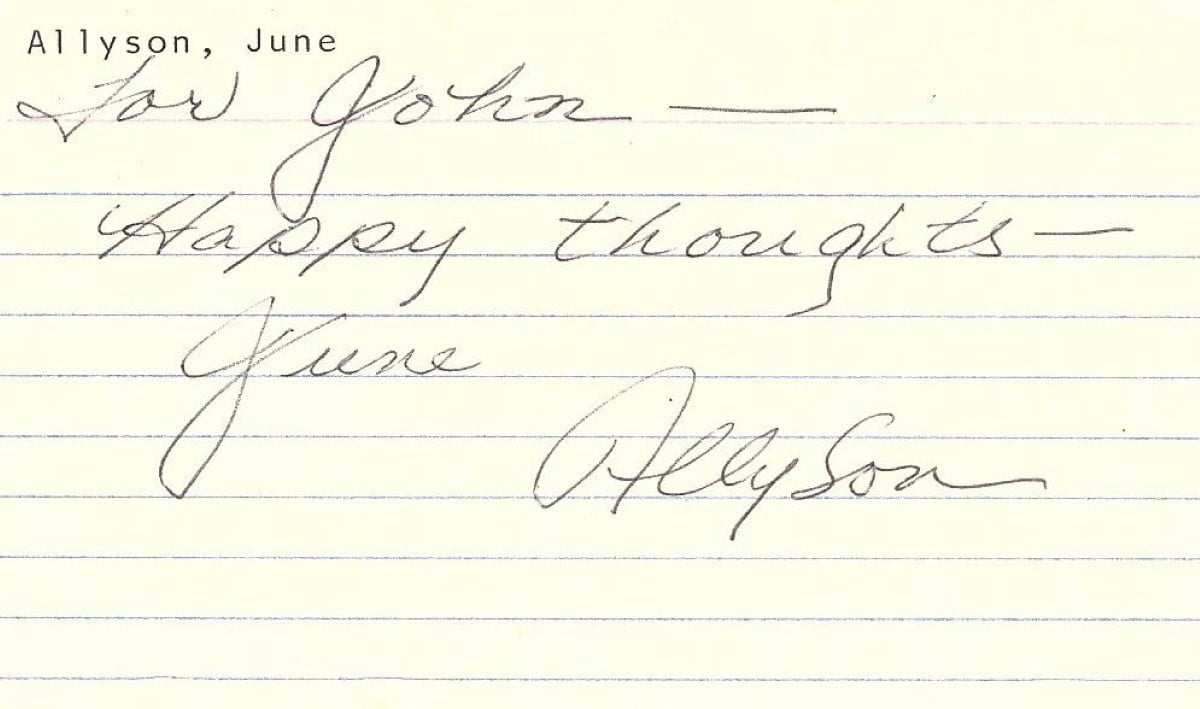 Allyson, June
For John —
Happy thoughts —
June
Allyson